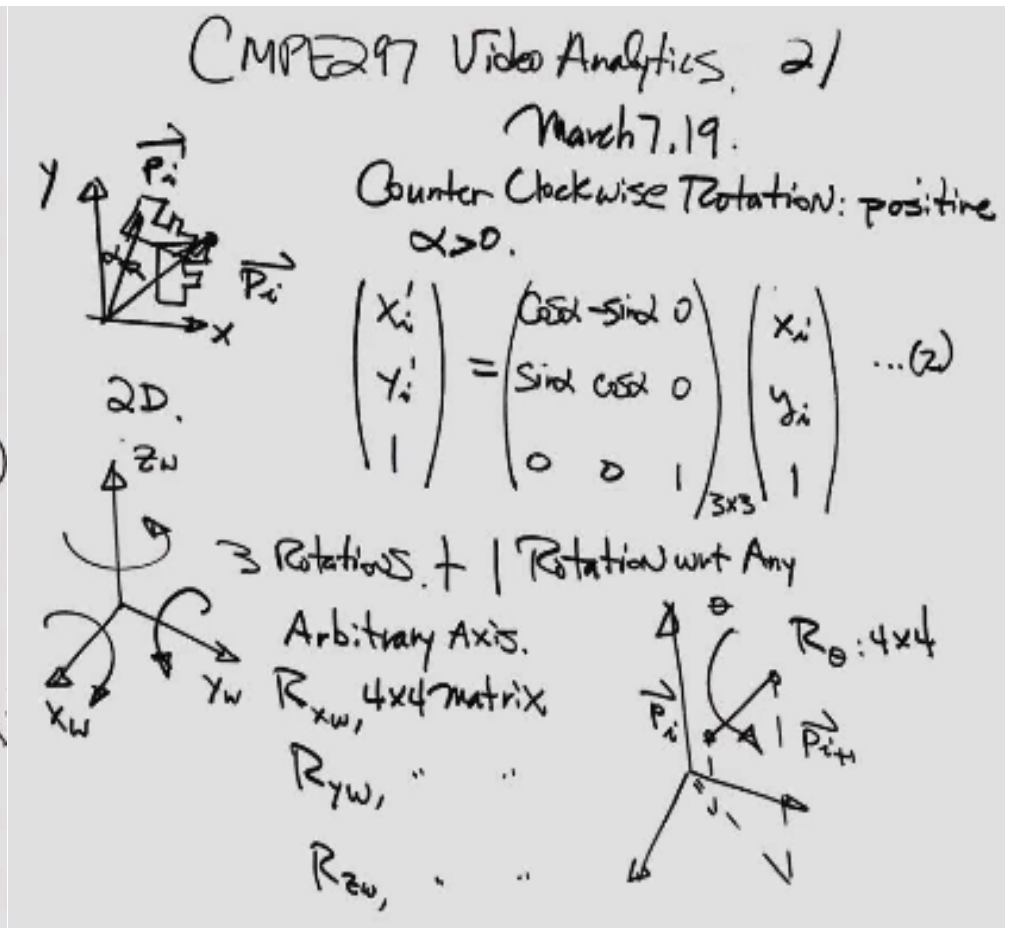 CMPE297 Video Analytics. 21
March 7, 19.
Counter Clockwise Rotation: positive
α>0.
Y
Pi
α
Pi
X
2D.
(Xi' Yi' 1) = (cosα -sinα 0 sinα cosα 0 0 0 1)3x3 (xi yi 1) ...(2)
Zw
Xw
Yw
3 Rotations + 1 Rotation wrt Any
Arbitrary Axis.
Rxw, 4x4 matrix
Ryw, " "
Rzw, " "
θ
Rθ: 4x4
Pi
Pi+1